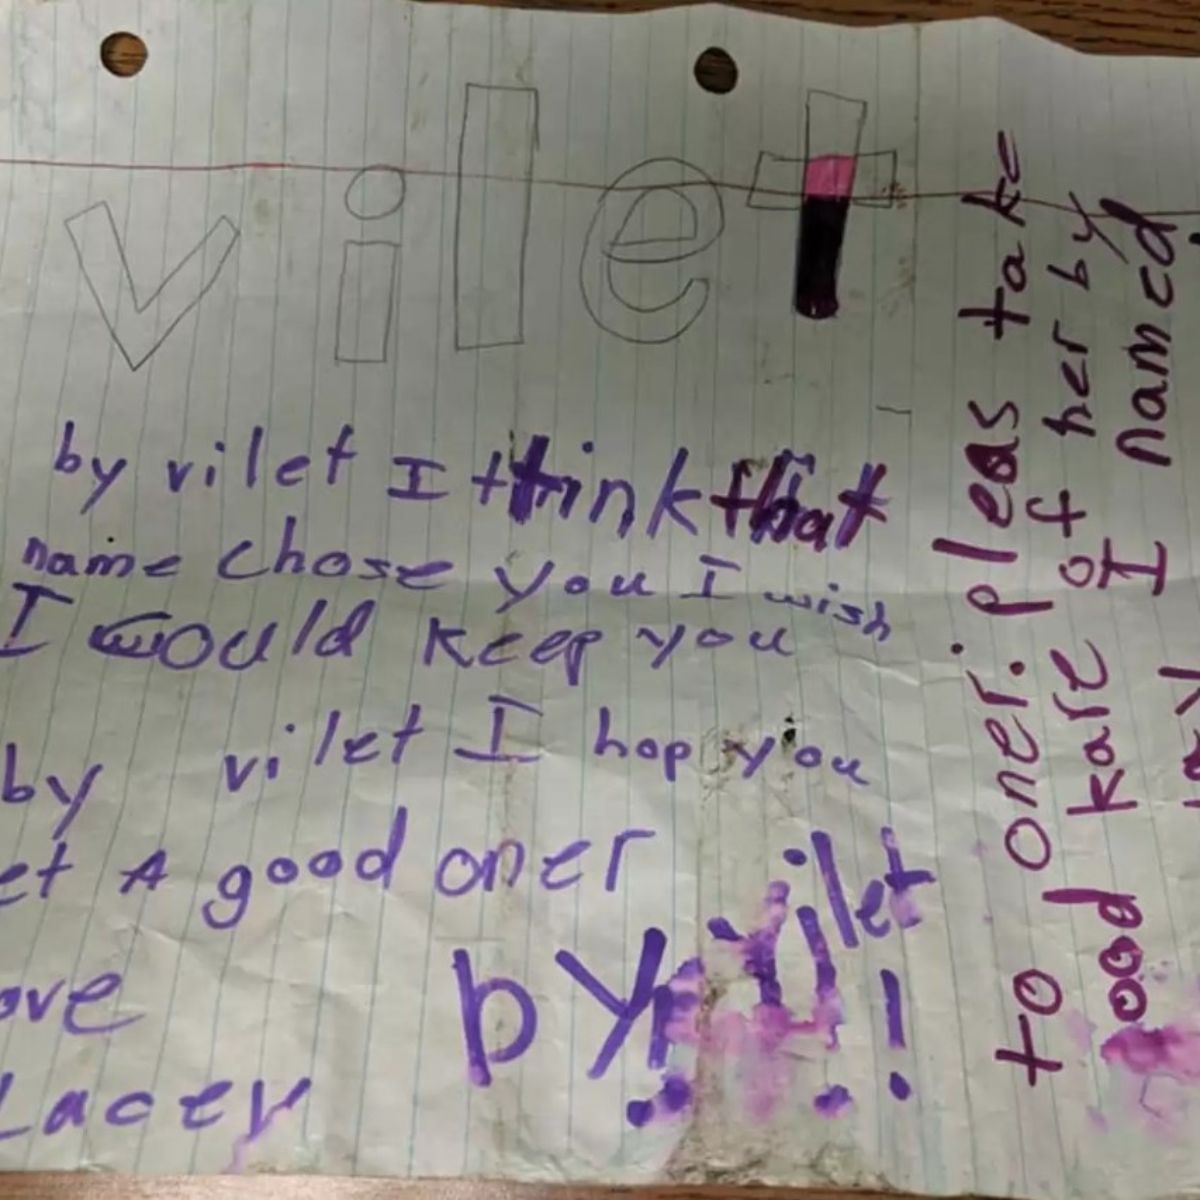 vilet
by vilet I think that
name chose you I wish
I would keep you
by vilet I hop you
et A good oner
ove
Lacey
by vilet!
to oner: pleas take
ood kare of her by
I named